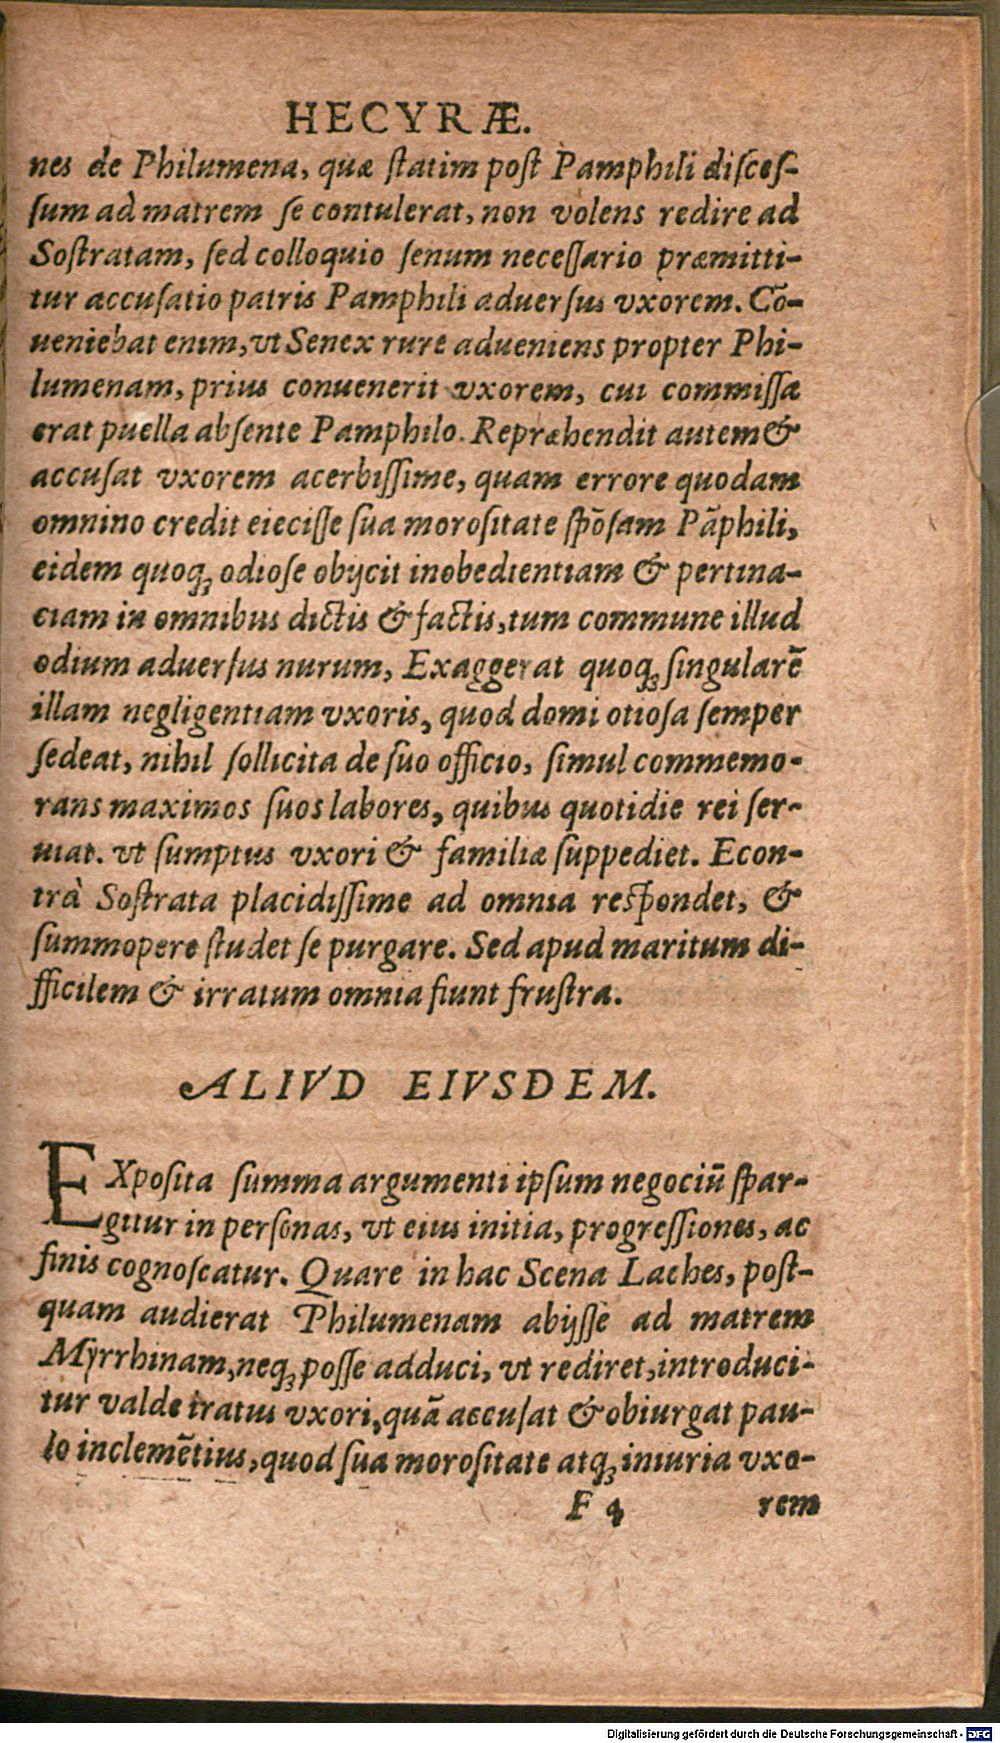 HECYRÆ.
nes de Philumena, quæ ſtatim poſt Pamphili diſceſ-
ſum ad matrem ſe contulerat, non volens redire ad
Soſtratam, ſed colloquio ſenum neceſſario præmitti-
tur accuſatio patris Pamphili aduerſus vxorem. Cō-
ueniebat enim, vt Senex rure adueniens propter Phi-
lumenam, prius conuenerit vxorem, cui commiſſa
erat puella abſente Pamphilo. Repræhendit autem &
accuſat vxorem acerbiſſime, quam errore quodam
omnino credit eieciſſe ſua moroſitate ſpōſam Pāphili,
eidem quoq; odioſe obijcit inobedientiam & pertina-
ciam in omnibus dictis & factis, tum commune illud
odium aduerſus nurum, Exaggerat quoq; ſingularē
illam negligentiam vxoris, quod domi otioſa ſemper
ſedeat, nihil ſollicita de ſuo officio, ſimul commemo-
rans maximos ſuos labores, quibus quotidie rei ſer-
uiat. vt ſumptus vxori & familiæ ſuppediet. Econ-
trà Soſtrata placidiſſime ad omnia reſpondet, &
ſummopere ſtudet ſe purgare. Sed apud maritum di-
fficilem & irratum omnia fiunt fruſtra.
ALIVD EIVSDEM.
EXpoſita ſumma argumenti ipſum negociū ſpar-
gitur in perſonas, vt eius initia, progreſſiones, ac
finis cognoſcatur. Quare in hac Scena Laches, poſt-
quam audierat Philumenam abijſſe ad matrem
Myrrhinam, neq; poſſe adduci, vt rediret, introduci-
tur valde iratus vxori, quā accuſat & obiurgat pau-
lo inclemētius, quod ſua moroſitate atq; iniuria vxo-
F 4 rem
Digitalisierung gefördert durch die Deutsche Forschungsgemeinschaft - DFG